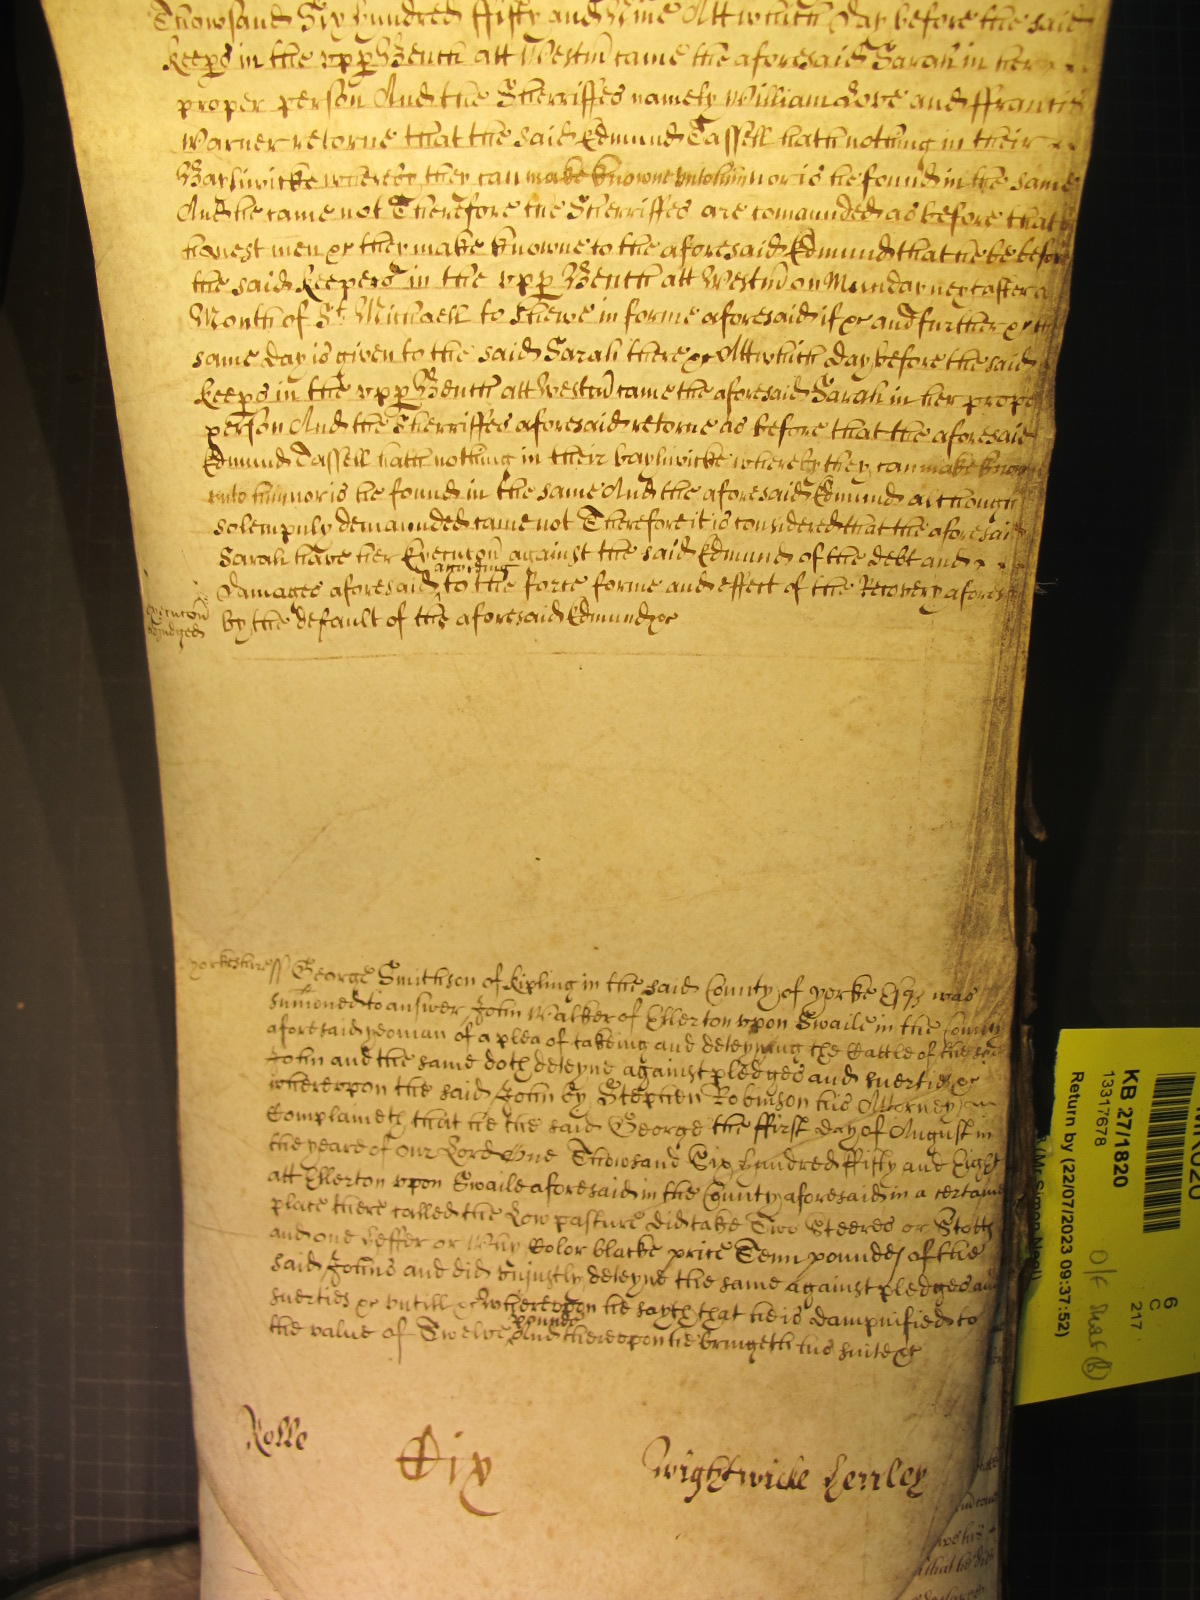 Thowsand Six hundred ffifty and Nine Att which day before the said
keeps in the vpp Bench att Westm came the aforesaid Sarah in her
proper person And the Sherriffes namely William Love and ffrancis
Warner retorne that the said Edmund Tassell hath nothing in their
Bayliwicke whereby they can make knowne vnto him nor is he found in the same
And he came not Therefore the Sherriffes are comanded as before that
honest men &c they make knowne to the aforesaid Edmund that he be before
the said keepers in the vpp Bench att Westm on Munday next after a
Month of St Michaell to shewe in forme aforesaid if &c and further &c the
same day is given to the said Sarah there &c Att which day before the said
keeps in the vpp Bench att Westm came the aforesaid Sarah in her proper
person And the Sherriffes aforesaid retorne as before that the aforesaid
Edmund Tassell hath nothing in their bayliwicke whereby they can make knowne
vnto him nor is he found in the same And the aforesaid Edmund although
solempnly demaunded came not Therefore it is considered that the aforesaid
Sarah have her Execucon against the said Edmund of the debt and
damages aforesaid according to the force forme and effect of the Recovery aforesaid
by the default of the aforesaid Edmund &c
Execucon
adiudged
Yorkeshire ss George Smithson of Kipling in the said County of Yorke Esqr was
sumoned to answer John Walker of Ellerton vpon Swaile in the County
aforesaid yeoman of a plea of takeing and deteyning the Cattle of the said
John and the same doth deteyne against pledges and suerties &c
wherevpon the said John by Stephen Robinson his Attorney
Complaineth that he the said George the ffirst day of August in
the yeare of our Lord One Thowsand Six hundred ffifty and Eight
att Ellerton vpon Swaile aforesaid in the County aforesaid in a certaine
place there called the Low pasture did take Two Steeres or Stotts
and one heffer or Why Color blacke price Tenn poundes of the
said Johns and did vniustly deteyne the same against pledges and
suerties &c vntill &c Wherevpon he sayth that he is dampnified to
the value of Twelve pounds And therevpon he bringeth his suite &c
Rolle Dix Wightwicke Henley
KB 27/1820
13317678
Return by (22/07/2023 09:37:52)
6
C
217